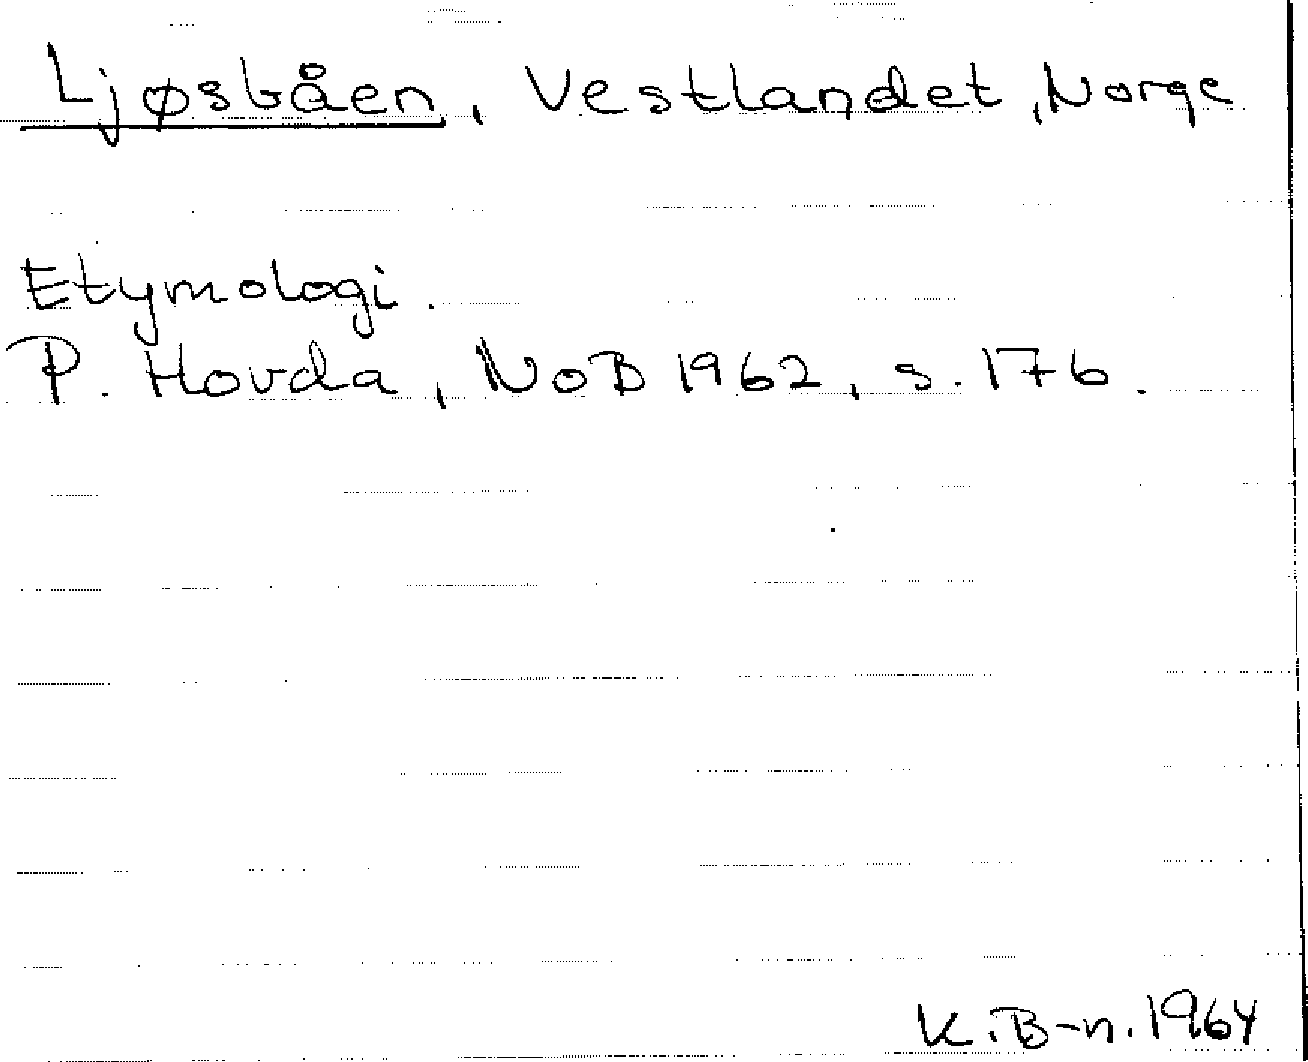 Ljøsbåen, Vestlandet, Norge
Etymologi.
P. Hovda, NoB 1962, s. 176.
K. B-n. 1964